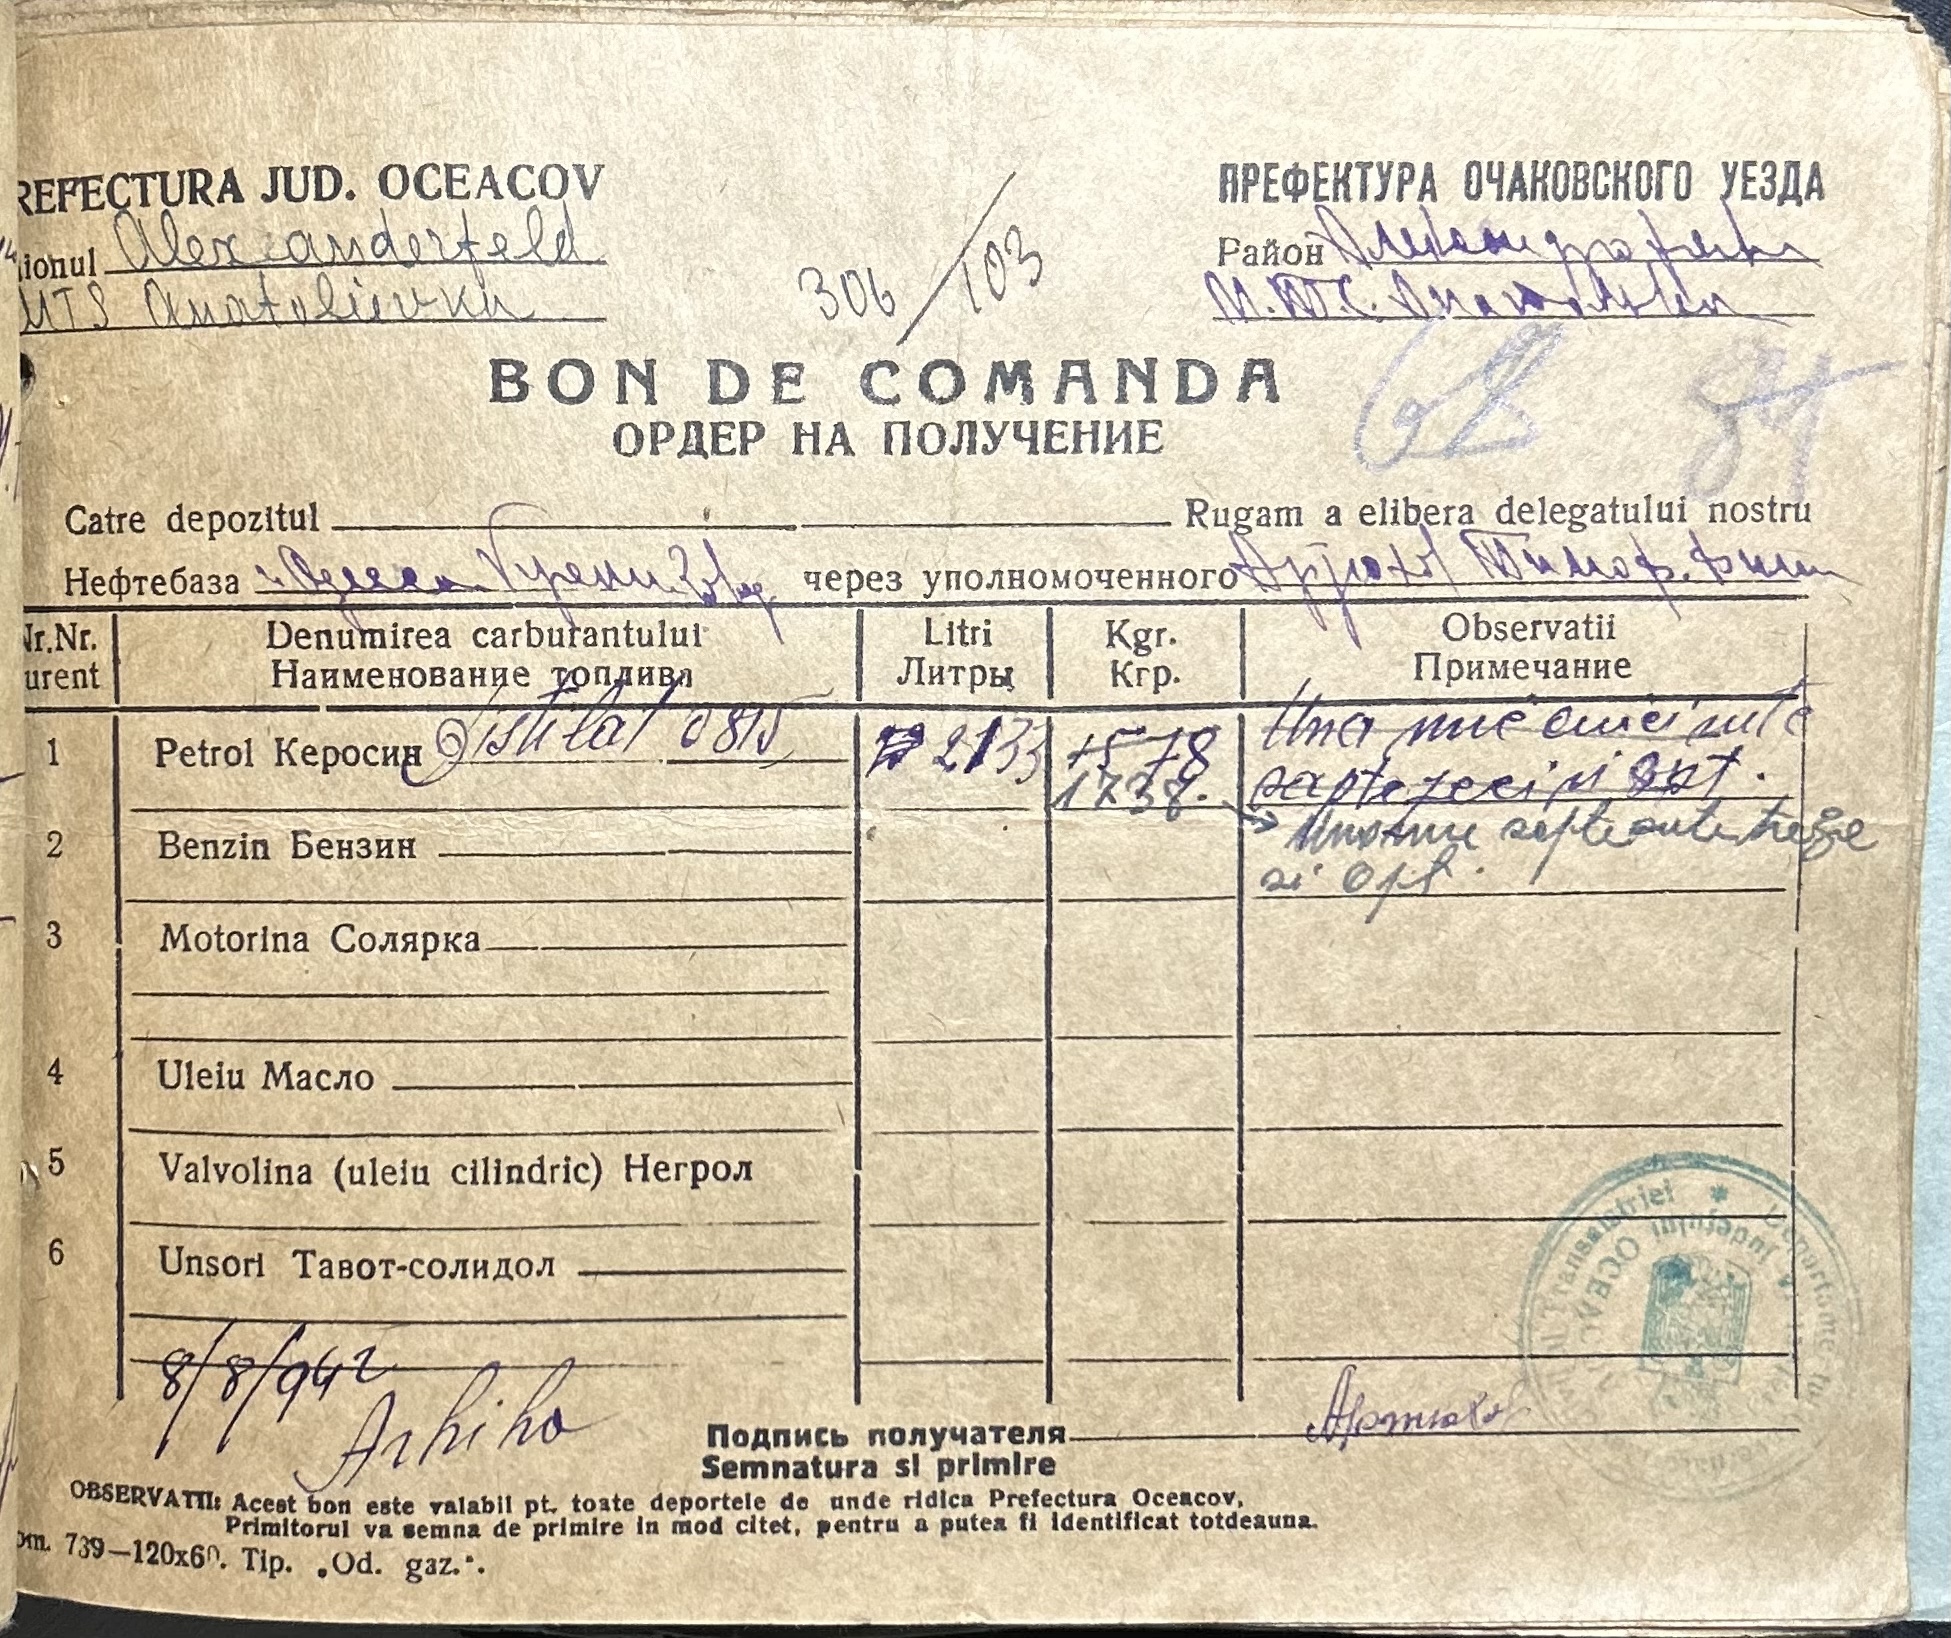 REFECTURA JUD. OCEACOV
ПРЕФЕКТУРА ОЧАКОВСКОГО УЕЗДА
ionul Alexanderfeld
Район
MTS Anatolievka
М.Т.С.
306/103
BON DE COMANDA
ОРДЕР НА ПОЛУЧЕНИЕ
Catre depozitul Rugam a elibera delegatului nostru
Нефтебаза г. Одесса через уполномоченного
Nr.Nr. Denumirea carburantului Litri Kgr. Observatii
urent Наименование топлива Литры Кгр. Примечание
1 Petrol Керосин Distilat 0815 2133 1578 Una mie cinci sute
1738. saptezeci si opt.
2 Benzin Бензин Una mie sapte sute treize
si opt.
3 Motorina Солярка
4 Uleiu Масло
5 Valvolina (uleiu cilindric) Негрол
6 Unsori Тавот-солидол
8/8/942
Подпись получателя
Semnatura si primire
OBSERVATII: Acest bon este valabil pt. toate deportele de unde ridica Prefectura Oceacov,
Primitorul va semna de primire in mod citet, pentru a putea fi identificat totdeauna.
om. 739—120x60. Tip. „Od. gaz.".
Transnistriei * Judetului OCEACOV